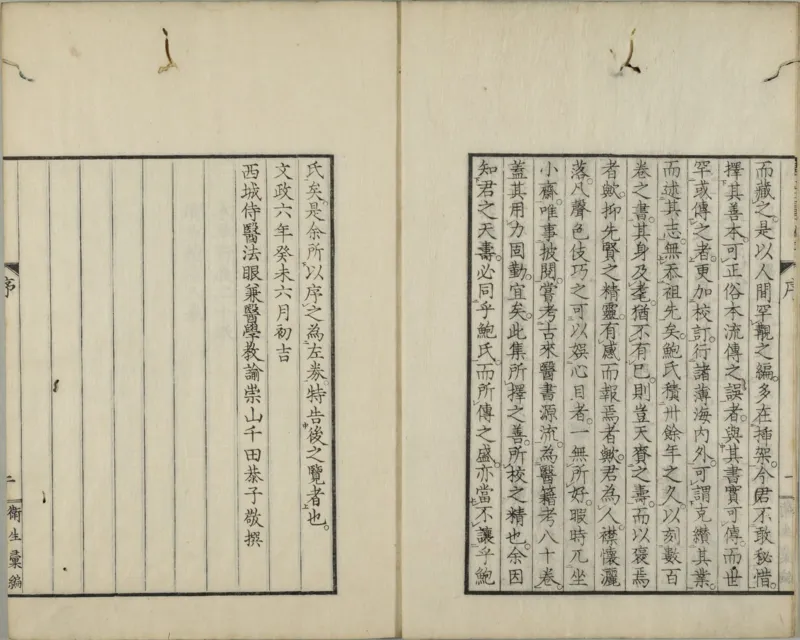 而藏之是以人間罕覯之編多在揷架今君不敢秘惜
擇其善本可正俗本流傳之誤者與其書實可傳而世
罕或傳之者更加校訂行諸薄海內外可謂克纘其業
而述其志無忝祖先矣鮑氏積卅餘年之久以刻數百
卷之書其身及耄猶不有已則豈天賚之壽而以褒焉
者歟抑先賢之精靈有感而報焉者歟君為人襟懷灑
落凡聲色伎巧之可以娛心目者一無所好暇時兀坐
小齋唯事披閱嘗考古來醫書源流為醫籍考八十卷
蓋其用力固勤宜矣此集所擇之善所校之精也余因
知君之天壽必同乎鮑氏而所傳之盛亦當不讓乎鮑
序
一
氏矣是余所以序之為左券特告後之覽者也
文政六年癸未六月初吉
西城侍醫法眼兼醫學教諭崇山千田恭子敬撰
序
二
衛生彙編